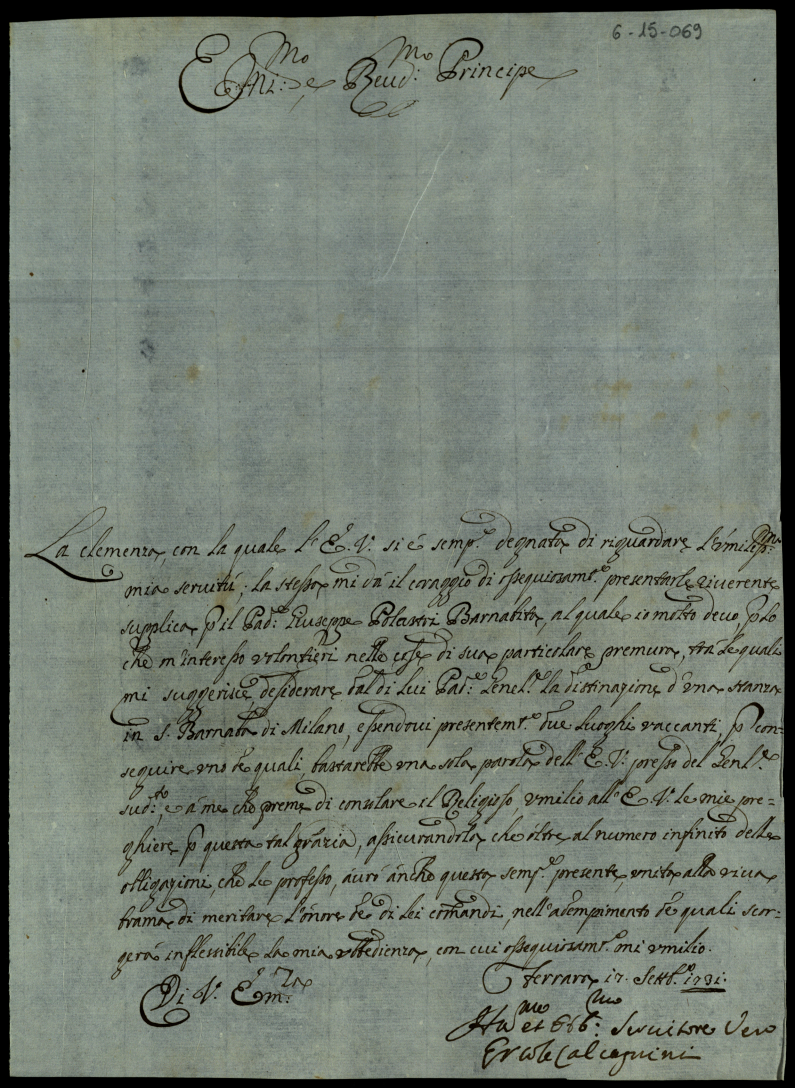 6-15-069
Emi:mo e Reud:mo Principe
La clemenza, con la quale l'E. V. si é semp.e degnata di riguardare l'umiliss.ma
mia servitú; la stessa mi dá il coraggio di ossequiosam.te presentarle riverente
supplica p il Pad.e Giuseppe Polcastri Barnabita, al quale io molto devo, p lo
che m'interesso volontieri nelle cose di sua particolare premura, trá le quali
mi suggerisce desiderare dal di lui Pad.e Genel.e la destinazione d'una stanza
in S. Barnaba di Milano, essendovi presentem.te due luoghi vaccanti, p con=
seguire uno de quali, bastarebbe una sola parola dell'E. V. presso del Genl.e
sud.to, e á me che preme di consolare il Religioso, umilio all'E. V. le mie pre=
ghiere p questa tal grazia, assicurandola, che oltre al numero infinito delle
obbligazioni, che le professo, avró anche questa semp.e presente, unita alla viva
brama di meritare l'onore de di Lei comandi, nell'adempimento de quali scor=
gerá inflessibile la mia ubbedienza, con cui ossequiosam.te mi umilio.
Di V. Em.za
Ferrara 17. Sett.e 1731.
Hu.mo et Obb:mo Servitore Vero
Ercole Calcagnini